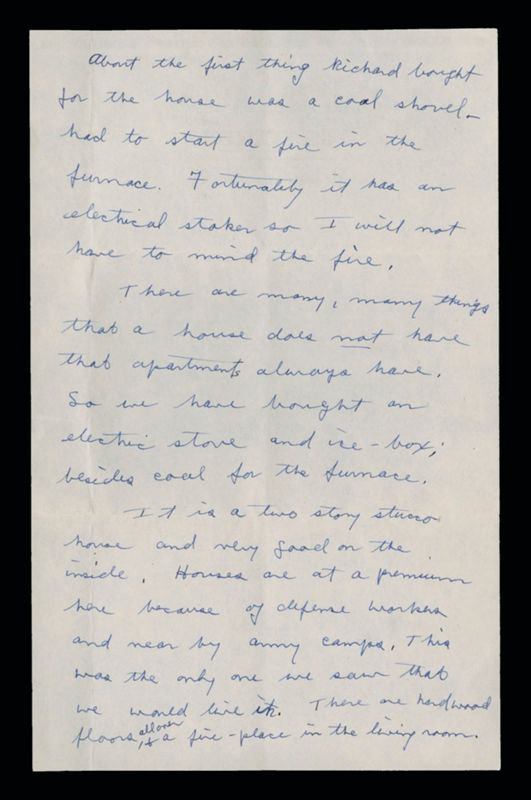 About the first thing Richard bought
for the house was a coal shovel -
had to start a fire in the
furnace. Fortunately it has an
electrical stoker so I will not
have to mind the fire.
There are many, many things
that a house does not have
that apartments always have.
So we have bought an
electric stove and ice-box;
besides coal for the furnace.
It is a two story stucco
house and very good on the
inside. Houses are at a premium
here because of defense workers
and near by army camps. This
was the only one we saw that
we would live in. There are hardwood
floors allover, & a fire-place in the living room.